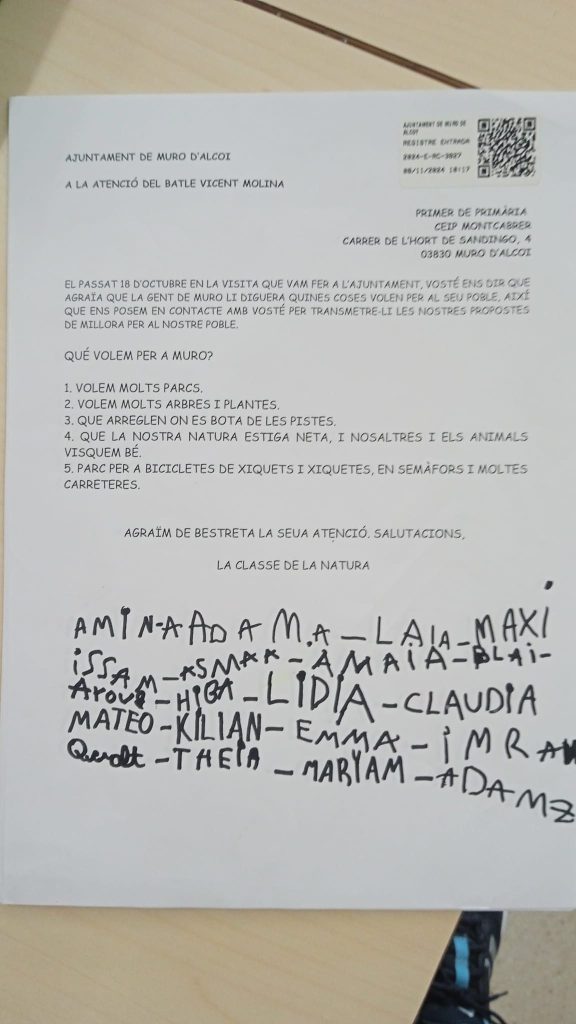 AJUNTAMENT DE MURO DE
ALCOY
REGISTRE ENTRADA
2024-E-RC-3827
08/11/2024 10:17
AJUNTAMENT DE MURO D'ALCOI
A LA ATENCIÓ DEL BATLE VICENT MOLINA
PRIMER DE PRIMÀRIA
CEIP MONTCABRER
CARRER DE L'HORT DE SANDINGO, 4
03830 MURO D'ALCOI
EL PASSAT 18 D'OCTUBRE EN LA VISITA QUE VAM FER A L'AJUNTAMENT, VOSTÉ ENS DIR QUE
AGRAÏA QUE LA GENT DE MURO LI DIGUERA QUINES COSES VOLEN PER AL SEU POBLE, AIXÍ
QUE ENS POSEM EN CONTACTE AMB VOSTÉ PER TRANSMETRE-LI LES NOSTRES PROPOSTES
DE MILLORA PER AL NOSTRE POBLE.
QUÉ VOLEM PER A MURO?
1. VOLEM MOLTS PARCS.
2. VOLEM MOLTS ARBRES I PLANTES.
3. QUE ARREGLEN ON ES BOTA DE LES PISTES.
4. QUE LA NOSTRA NATURA ESTIGA NETA, I NOSALTRES I ELS ANIMALS
VISQUEM BÉ.
5. PARC PER A BICICLETES DE XIQUETS I XIQUETES, EN SEMÀFORS I MOLTES
CARRETERES.
AGRAÏM DE BESTRETA LA SEUA ATENCIÓ. SALUTACIONS,
LA CLASSE DE LA NATURA
AMINA ADAM.A - LAIA - MAXI
ISSAM - ASMAA - AMAIA - BLAI -
HIBA - LIDIA - CLAUDIA
MATEO - KILIAN - EMMA - IMRAN
Queralt - THEIA - MARYAM - ADAMZ